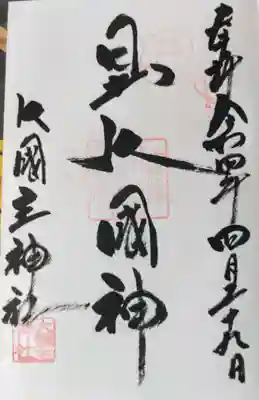 奉拝 令和四年 四月十九日
大國神
大國主神社